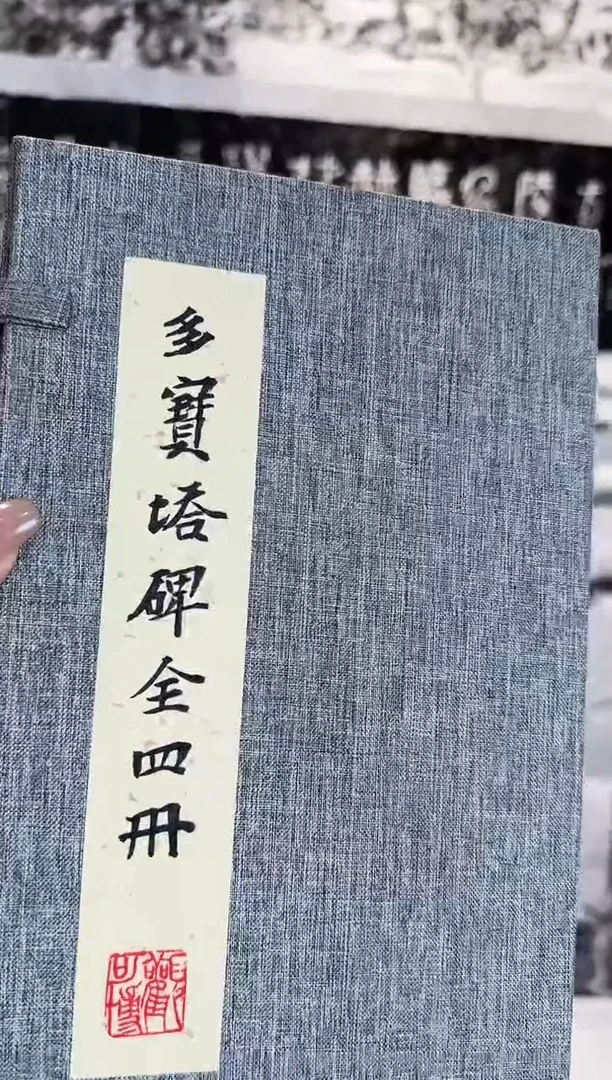 多寶塔碑全四冊